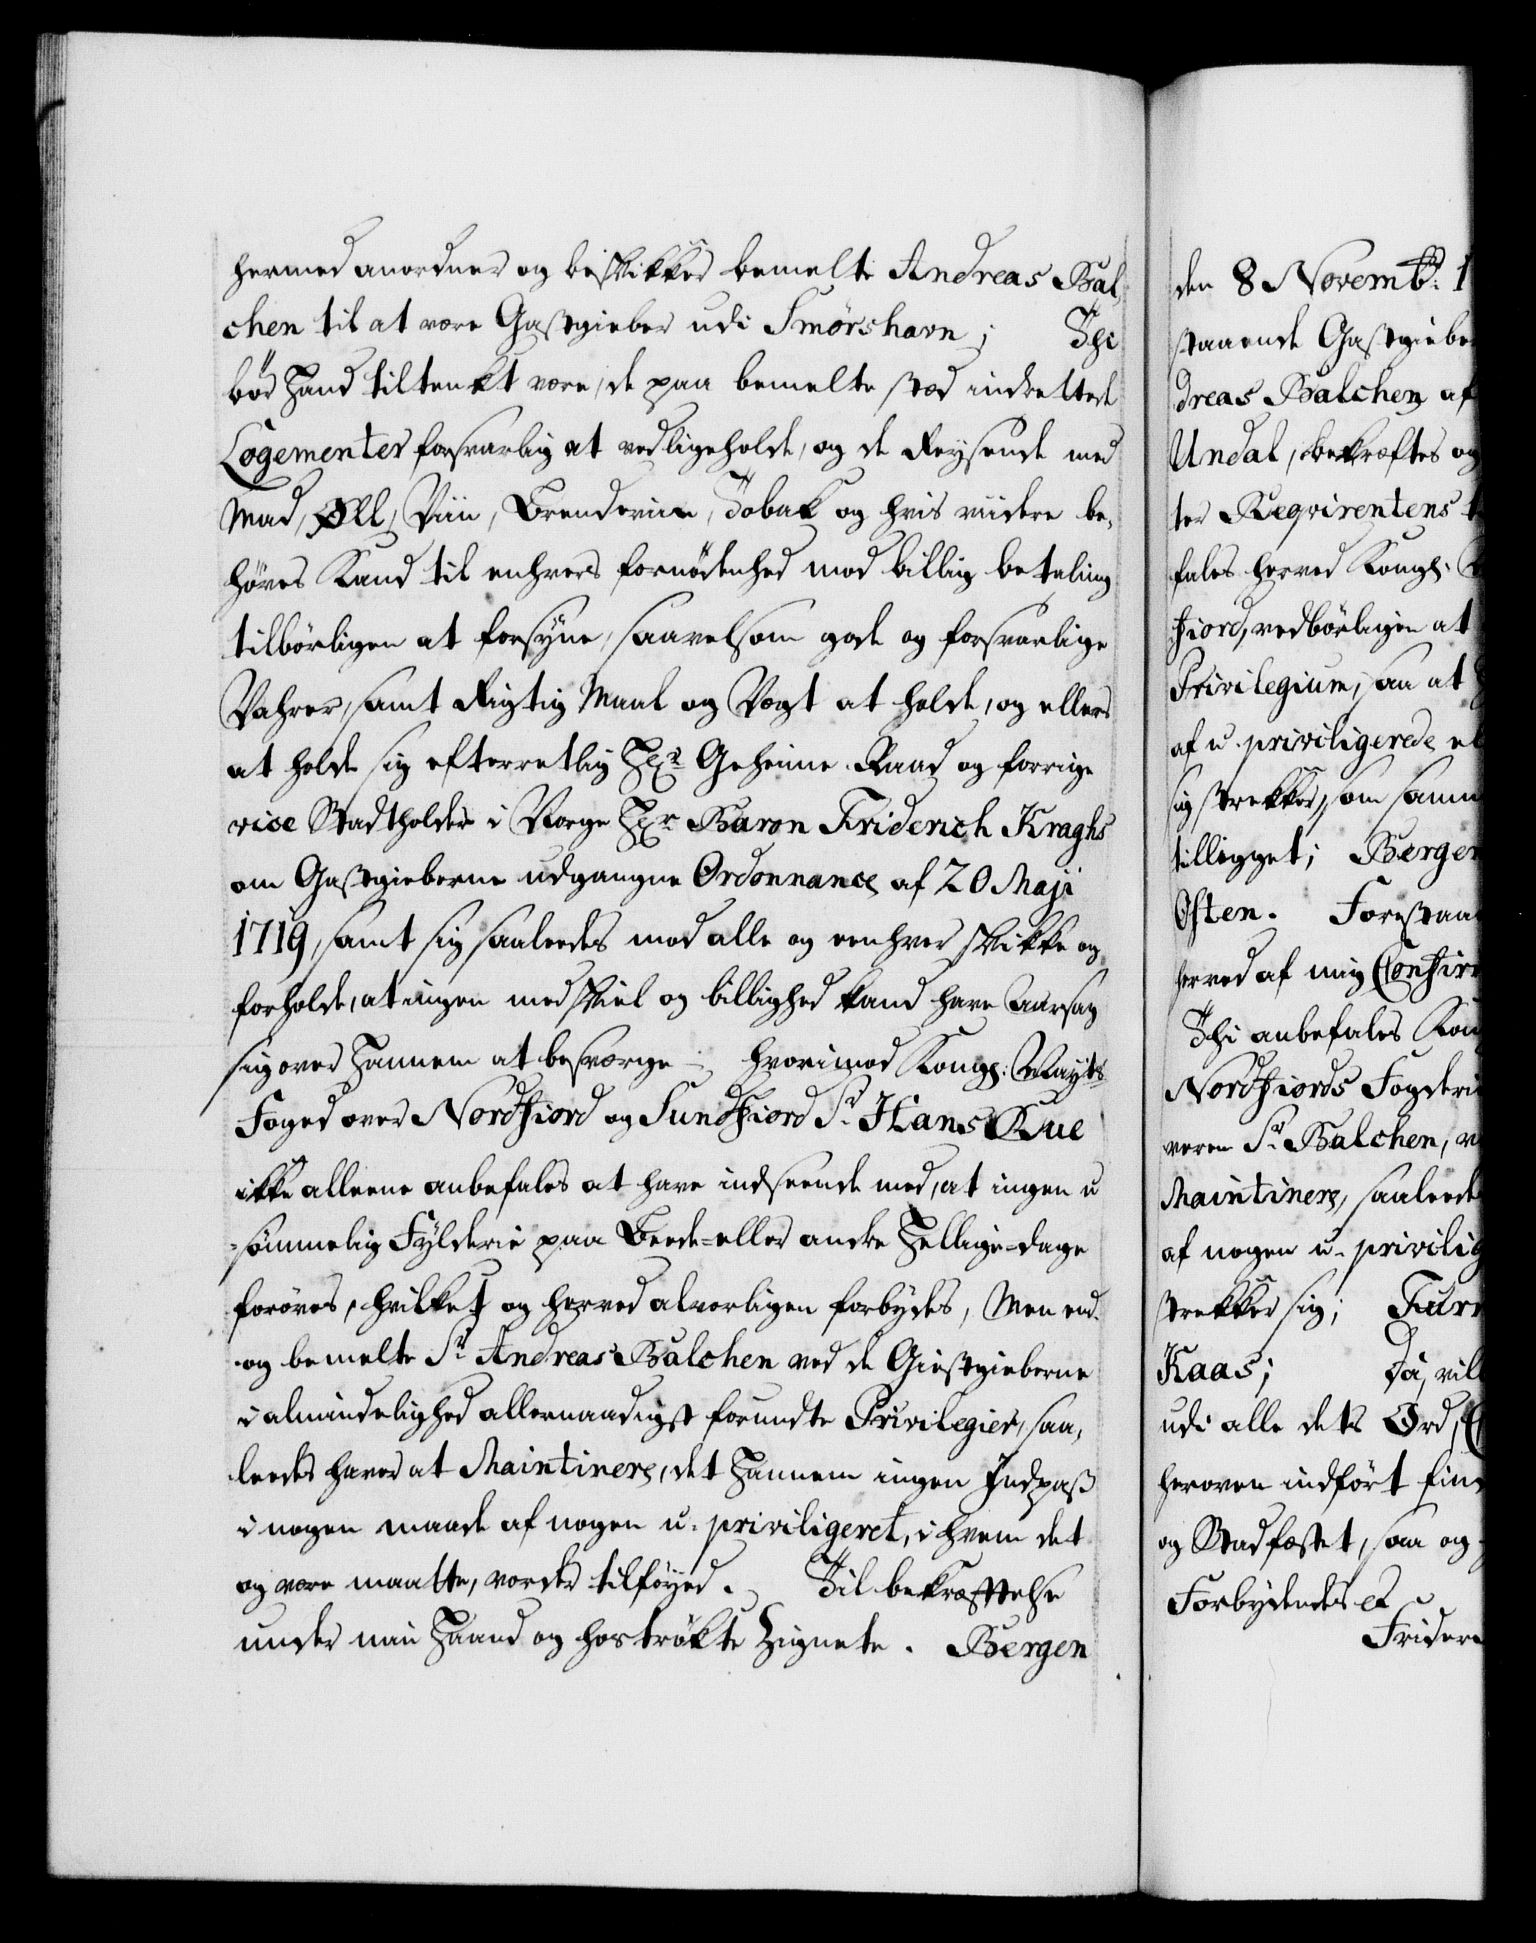 hermed anordner og beskikker bemelte Andreas Bal,
chen til at være Gastgieber udi Smørshavn; Thi
bør Hand tiltenkt være, de paa bemelte stæd indrettede
Logementer forsvarlig at vedligeholde, og de Reysende med
Mad, Øll, Viin, Brendeviin, Tobak og hvis viidere be,
høves kand til enhvers fornødenhed mod billig betaling
tilbørligen at forsyne, saavelsom gode og forsvarlige
Vahrer, samt Rigtig Maal og Vægt at holde, og ellers
at holde sig efterretlig Hr. Geheime Raad og forrige
vice Stadtholder i Norge Hr. Baron Friderich Kraghs
om Gastgieberne udgangne Ordonnance af 20 Maji
1719, samt sig saaledes mod alle og eenhver skikke og
forholde, at ingen med skiel og billighed kand have Aarsag
sig over Hannem at besværge ; hvorimod Kongl: Mayts
Foged over Nordfiord og Sundfiord Sr. Hans Bue
ikke alleene anbefales at have indseende med, at ingen u
-sømmelig Fylderie paa Beede- eller andre Hellige-dage
forøves, hvilket og herved alvorligen forbydes, Men end
og bemelte Sr. Andreas Balchen ved de Giestgieberne
i almindelighed allernaadigst forundte Privilegier, saa,
leedes haver at Maintinere, det Hannem ingen Indpass
i nogen maade af nogen u-priviligeret, i hvem det
og være maatte, vorder tilføyed. Til bekræftelse
under min Haand og hostrøkte Zignete. Bergen
den 8 Novembr: 1
staaende Gastgieber
dreas Balchen af
Undal, bekræftes og
ter Reqvirentens
fales herved Kongl:
fiord, vedbørligen at
Privilegium, saa at
af u-priviligerede el
sig strekker, som samm
tilligget; Bergen
Osten. Forestaa
herved af mig Confir
Thi anbefales Kon
Nordfiords Fogderi
veren Sr. Balchen, v
Maintinere, saaleede
af nogen u-privilig
strekker sig;
Kaas; Da, vill
udi alle dets Ord,
heroven indført find
og Stadfæstet, saa og
Forbydendes et
Frider